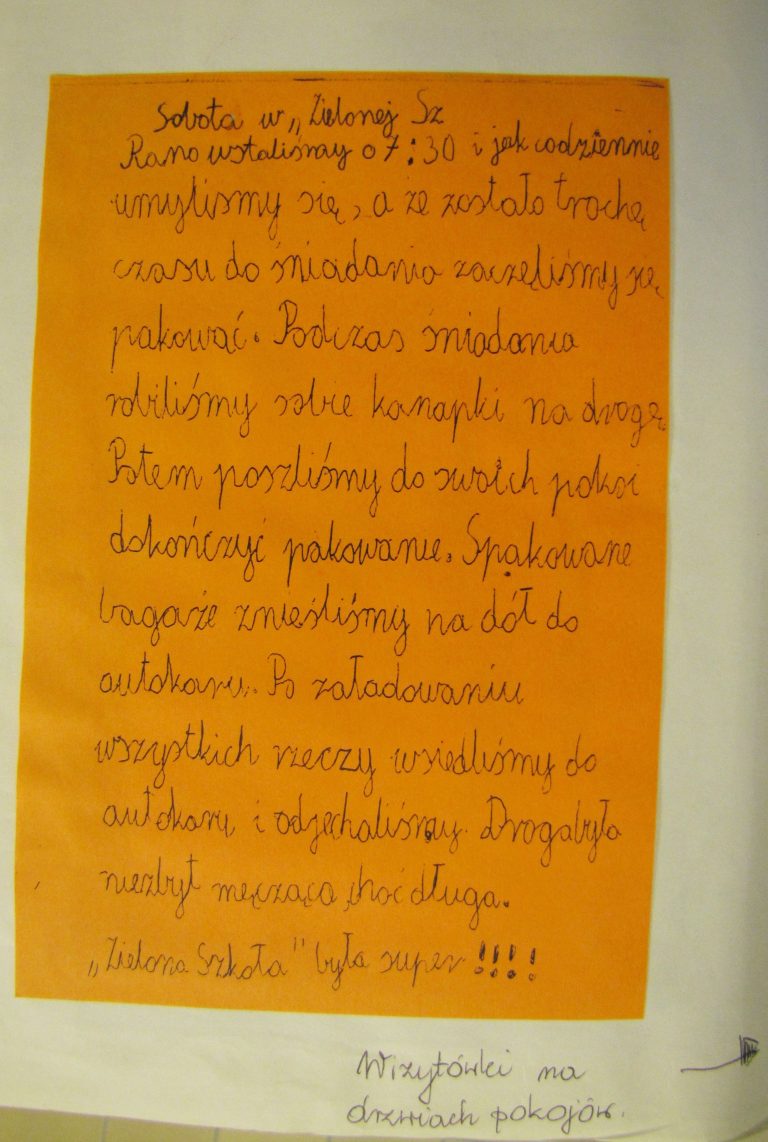 Sobota w „Zielonej Sz
Rano wstaliśmy o 7:30 i jak codziennie
umyliśmy się, a że zostało trochę
czasu do śniadania zaczęliśmy się
pakować. Podczas śniadania
robiliśmy sobie kanapki na drogę.
Potem poszliśmy do swoich pokoi
dokończyć pakowanie. Spakowane
bagaże znieśliśmy na dół do
autokaru. Po załadowaniu
wszystkich rzeczy wsiedliśmy do
autokaru i odjechaliśmy. Droga była
niezbyt męcząca choć długa.
„Zielona Szkoła" była super !!!!
Wizytówki na
drzwiach pokojów.